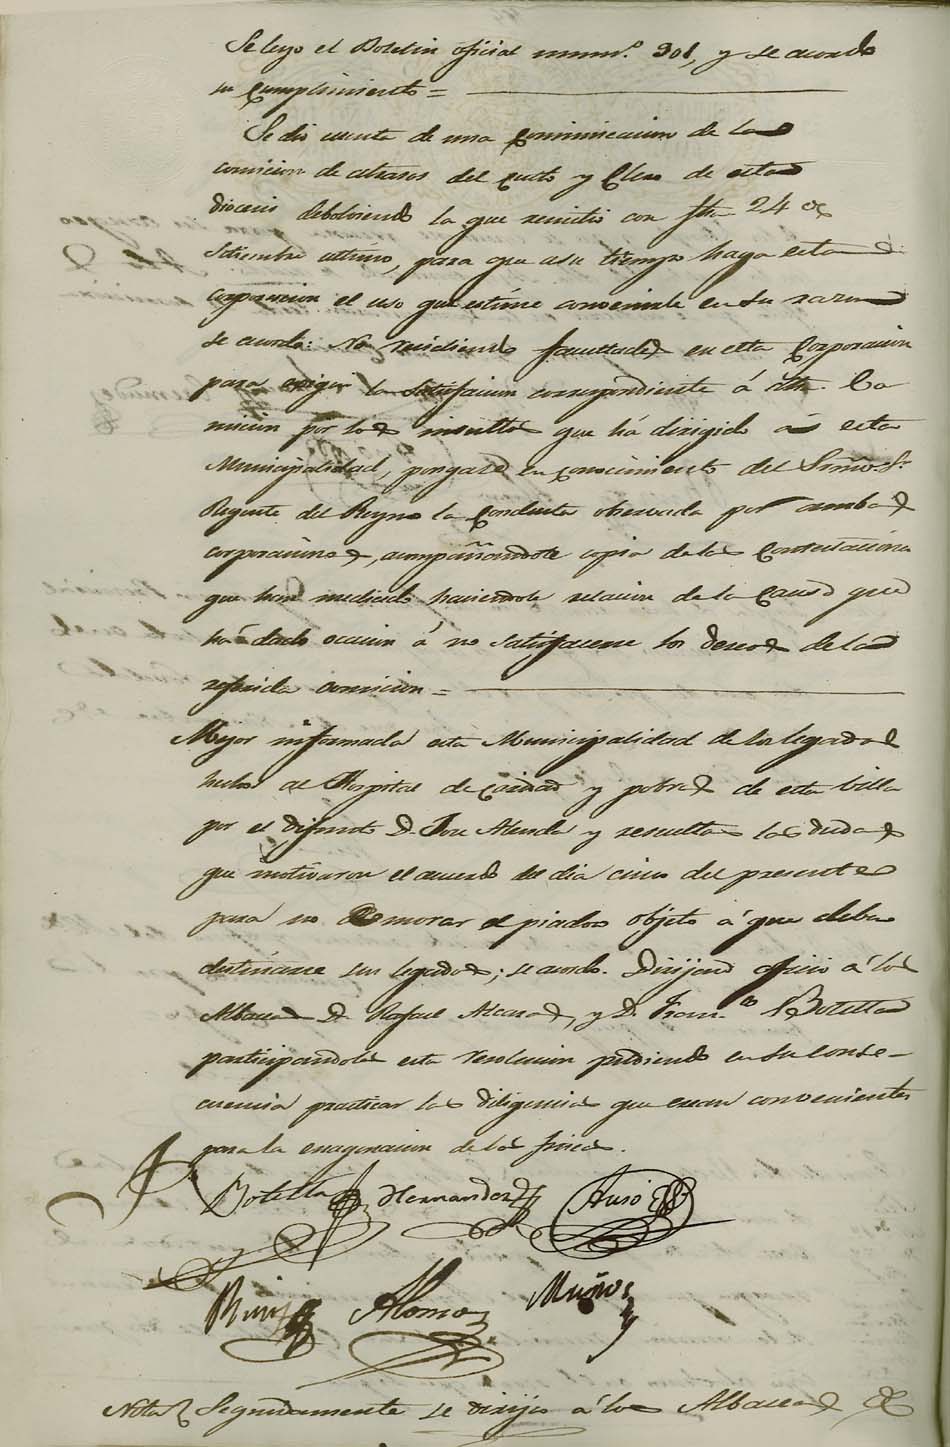 Se leyo el Boletin oficial num.º 301, y se acordo
su Cumplimiento =
Se dio cuenta de una Comunicacion de la
comision de atrasos del Culto y Clero de esta
Diocesis debolviendo la que remitio con fha 24 de
Setiembre ultimo, para que a su tiempo haga esta
corporacion el uso que estime conveniente en su razon
se acordo: No residiendo facultades en esta Corporacion
para exigir la satisfacion correspondiente á dha Co
mision por los insultos que há dirigido á esta
Municipalidad, pongase en conocimiento del Smo Sr
Regente del Reyno la Conducta observada por ambas
corporaciones, acompañandole copia de las Contestaciones
que han mediado haciendole relacion de la Causa que
há dado ocacion á no satisfacerse los deseos de la
referida comision =
Mejor informada esta Municipalidad de los legados
hechos al Hospital de caridad y pobres de esta Villa
por el difunto D. Jose Alenda y resueltas las dudas
que motivaron el acuerdo del dia cinco del presente
para no Demorar el piadoso objeto á que deben
destinarse sus legados; se acordo. Dirijase oficio á los
Albaceas D. Rafael Alcaraz, y D. Fran.co Botella
participandoles esta resolucion pudiendo en su conse-
cuencia practicar las diligencias que crean convenientes
para la enagenacion de las fincas.
Botella Hernandez Ausó
Ruiz Alonso Muños
Nota Seguidamente se dirijio á los Albaceas